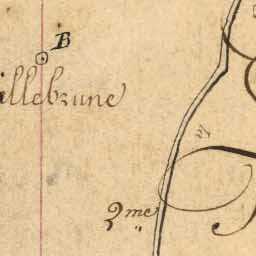 B
illebrune
la
2me